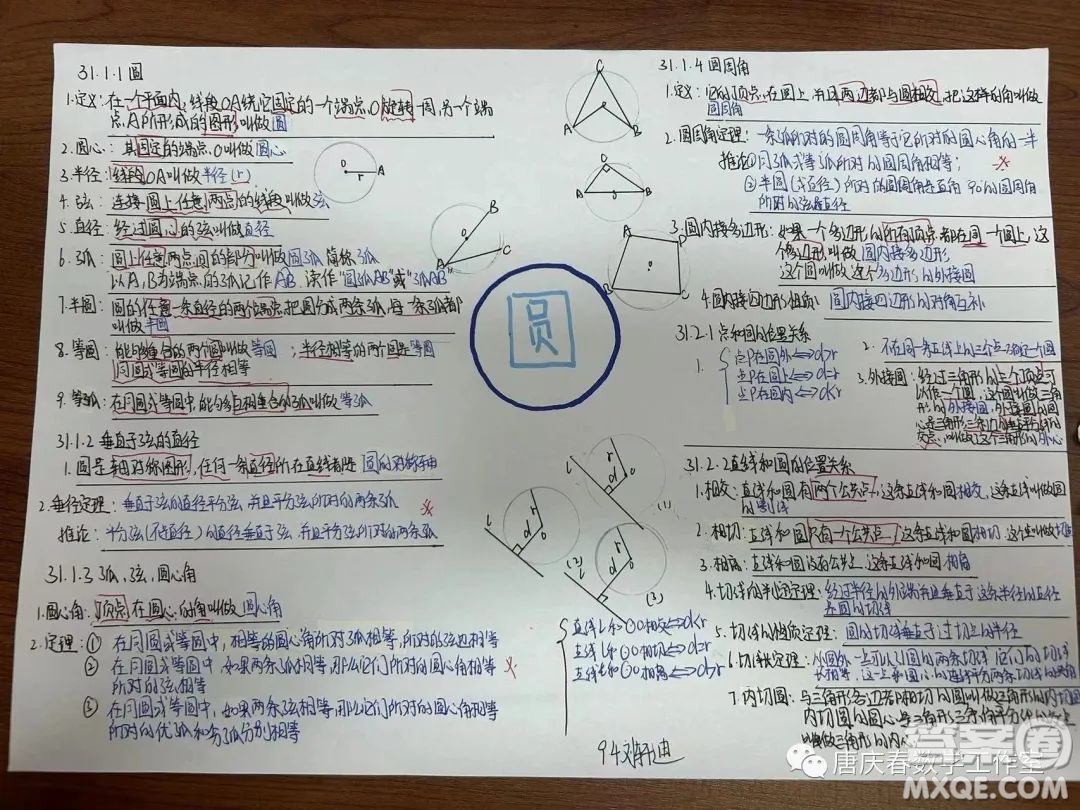 31.1.1圆
1.定义:在一个平面内,线段OA绕它固定的一个端点O旋转一周,另一个端
点A所形成的图形叫做圆
2.圆心:其固定的端点O叫做圆心
3.半径:线段OA叫做半径(r)
4.弦:连接圆上任意两点的线段叫做弦
5.直径:经过圆心的弦叫做直径
6.弧:圆上任意两点间的部分叫做圆弧简称弧
以A,B为端点的弧记作AB 读作"圆弧AB"或"弧AB"
7.半圆:圆的任意一条直径的两个端点把圆分成两条弧,每一条弧都
叫做半圆
8.等圆:能够重合的两个圆叫做等圆;半径相等的两个圆是等圆
同圆或等圆的半径相等
9.等弧:在同圆或等圆中,能够互相重合的弧叫做等弧
31.1.2 垂直于弦的直径
1.圆是轴对称图形,任何一条直径所在直线都是圆的对称轴
2.垂径定理:垂直于弦的直径平分弦,并且平分弦所对的两条弧
推论:平分弦(不是直径)的直径垂直于弦,并且平分弦所对的两条弧
31.1.3 弧,弦,圆心角
1.圆心角:顶点在圆心的角叫做圆心角
2.定理:① 在同圆或等圆中,相等的圆心角所对弧相等,所对的弦也相等
② 在同圆或等圆中,如果两条弧相等,那么它们所对的圆心角相等
所对的弦相等
③ 在同圆或等圆中,如果两条弦相等,那么它们所对的圆心角相等
所对的优弧和劣弧分别相等
O
r
A
B
O
A
C
C
A
B
C
A
O
B
A
D
O
B
C
圆
l
r
d
(1)
l
r
d
O
(2)
l
r
d
O
(3)
直线l和⊙O相交⇔d<r
直线l和⊙O相切⇔d=r
直线l和⊙O相离⇔d>r
31.1.4圆周角
1.定义:它的顶点在圆上,并且两边都与圆相交,把这样的角叫做
圆周角
2.圆周角定理:一条弧所对的圆周角等于它所对的圆心角的一半
推论①同弧或等弧所对的圆周角相等;
②半圆(或直径)所对的圆周角是直角 90°的圆周角
所对的弦是直径
3.圆内接多边形:如果一个多边形的所有顶点都在同一个圆上,这
个多边形叫做圆内接多边形
这个圆叫做这个多边形的外接圆
4.圆内接四边形性质:圆内接四边形的对角互补
31.2.1点和圆的位置关系
1.
点P在圆外⇔d>r
点P在圆上⇔d=r
点P在圆内⇔d<r
2.不在同一条直线上的三个点确定一个圆
3.外接圆:经过三角形的三个顶点可
以作一个圆,这个圆叫做三角
形的外接圆,外接圆的圆
心是三角形三条边的垂直平分线的
交点,叫做这个三角形的外心
31.2.2直线和圆的位置关系
1.相交:直线和圆有两个公共点,这条直线和圆相交,这条直线叫做圆
的割线
2.相切:直线和圆只有一个公共点,这条直线和圆相切,这
3.相离:直线和圆没有公共点,这条直线和圆相离
4.切线的判定定理:经过半径的外端并且垂直于这条半径的直径
是圆的切线
5.切线的性质定理:圆的切线垂直于过切点的半径
6.切线长定理:从圆外一点可以引圆的两条切线 它们的切线
长相等,这一点和圆心的连线平分两条切线的夹角
7.内切圆:与三角形各边都相切的圆叫做三角形的内切圆
内切圆的圆心是三角形三条角平分线的交点
叫做三角形的内心
94
唐庆春数学工作室
答案圈
MXQE.COM